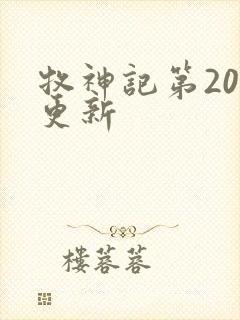 牧神記第20
更新
樓蓉蓉